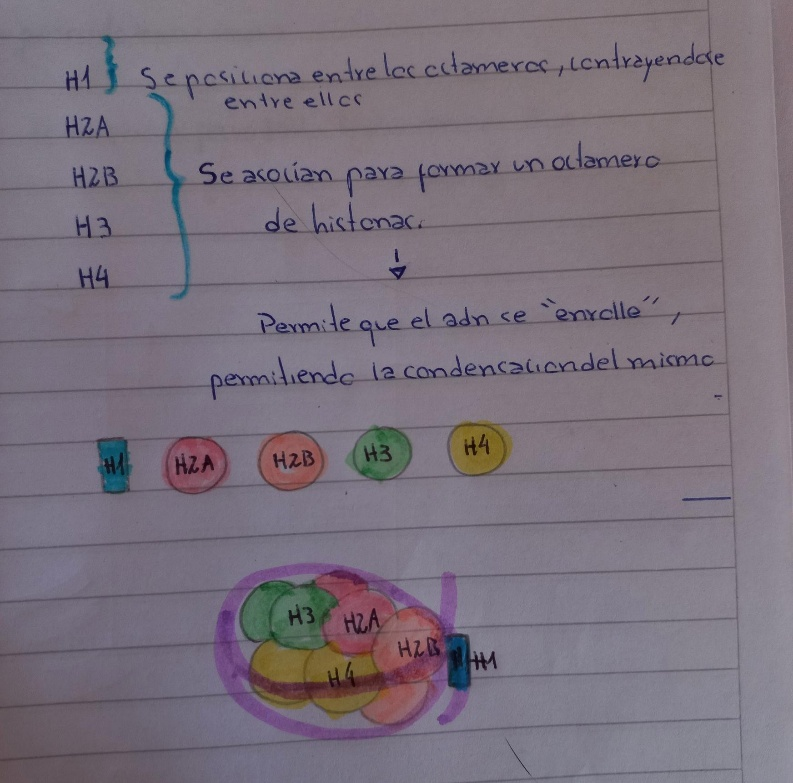 H1 } Se posiciona entre los octameros, contrayendose
entre ellos
H2A
H2B
H3
H4
Se asocian para formar un octamero
de histonas.
Permite que el adn se "enrolle",
permitiendo la condensacion del mismo
H1 H2A H2B H3 H4
H3 H2A
H2B H1
H4